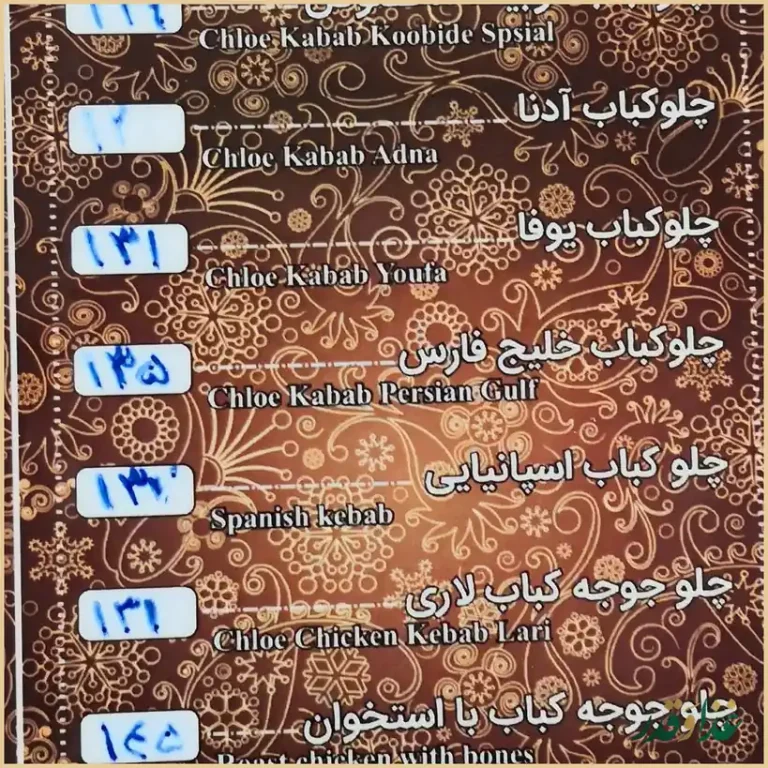 Chloe Kabab Koobide Spsial
چلوکباب آدنا
Chloe Kabab Adna
چلوکباب یوفا
۱۳۱
Chloe Kabab Youfa
چلوکباب خلیج فارس
۱۳۵
Chloe Kabab Persian Gulf
چلو کباب اسپانیایی
Spanish kebab
چلو جوجه کباب لاری
۱۳۱
Chloe Chicken Kebab Lari
چلو جوجه کباب با استخوان
Roast chicken with bones